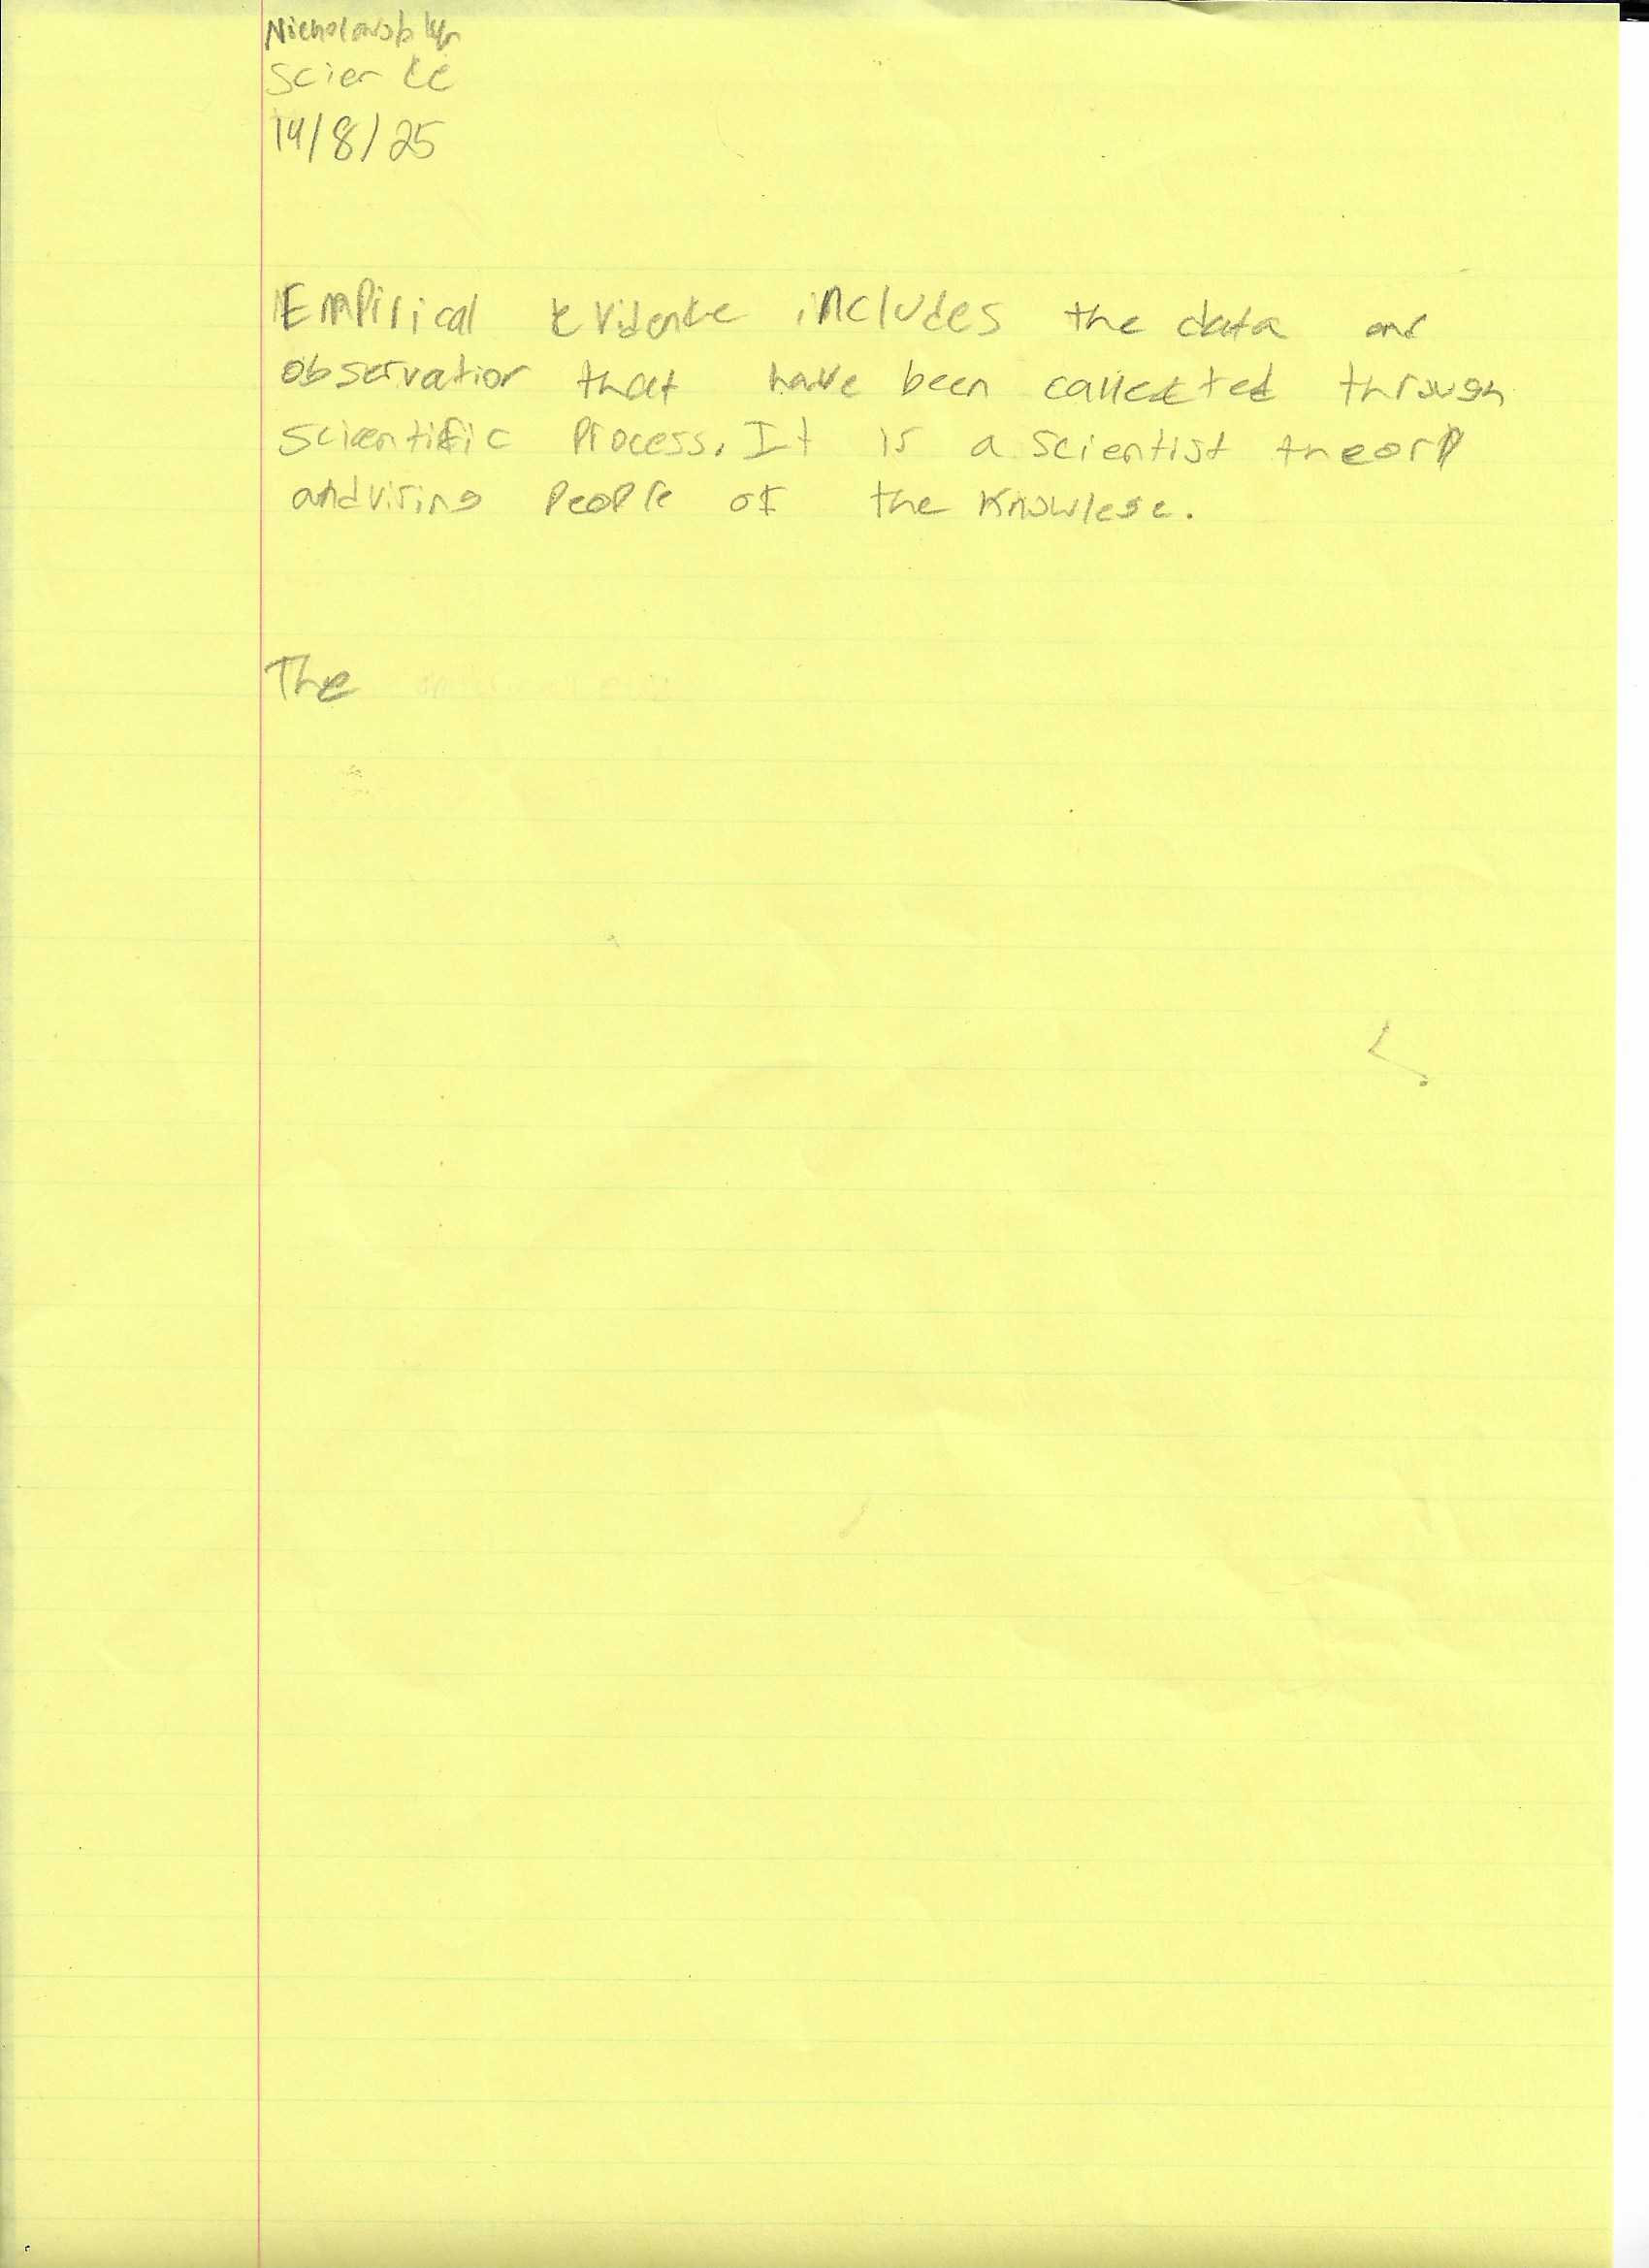 Science
14/8/25
Empirical Evidence includes the data and
observation that have been collected through
scientific Process. It is a scientist theory
People of the Knowlege.
The